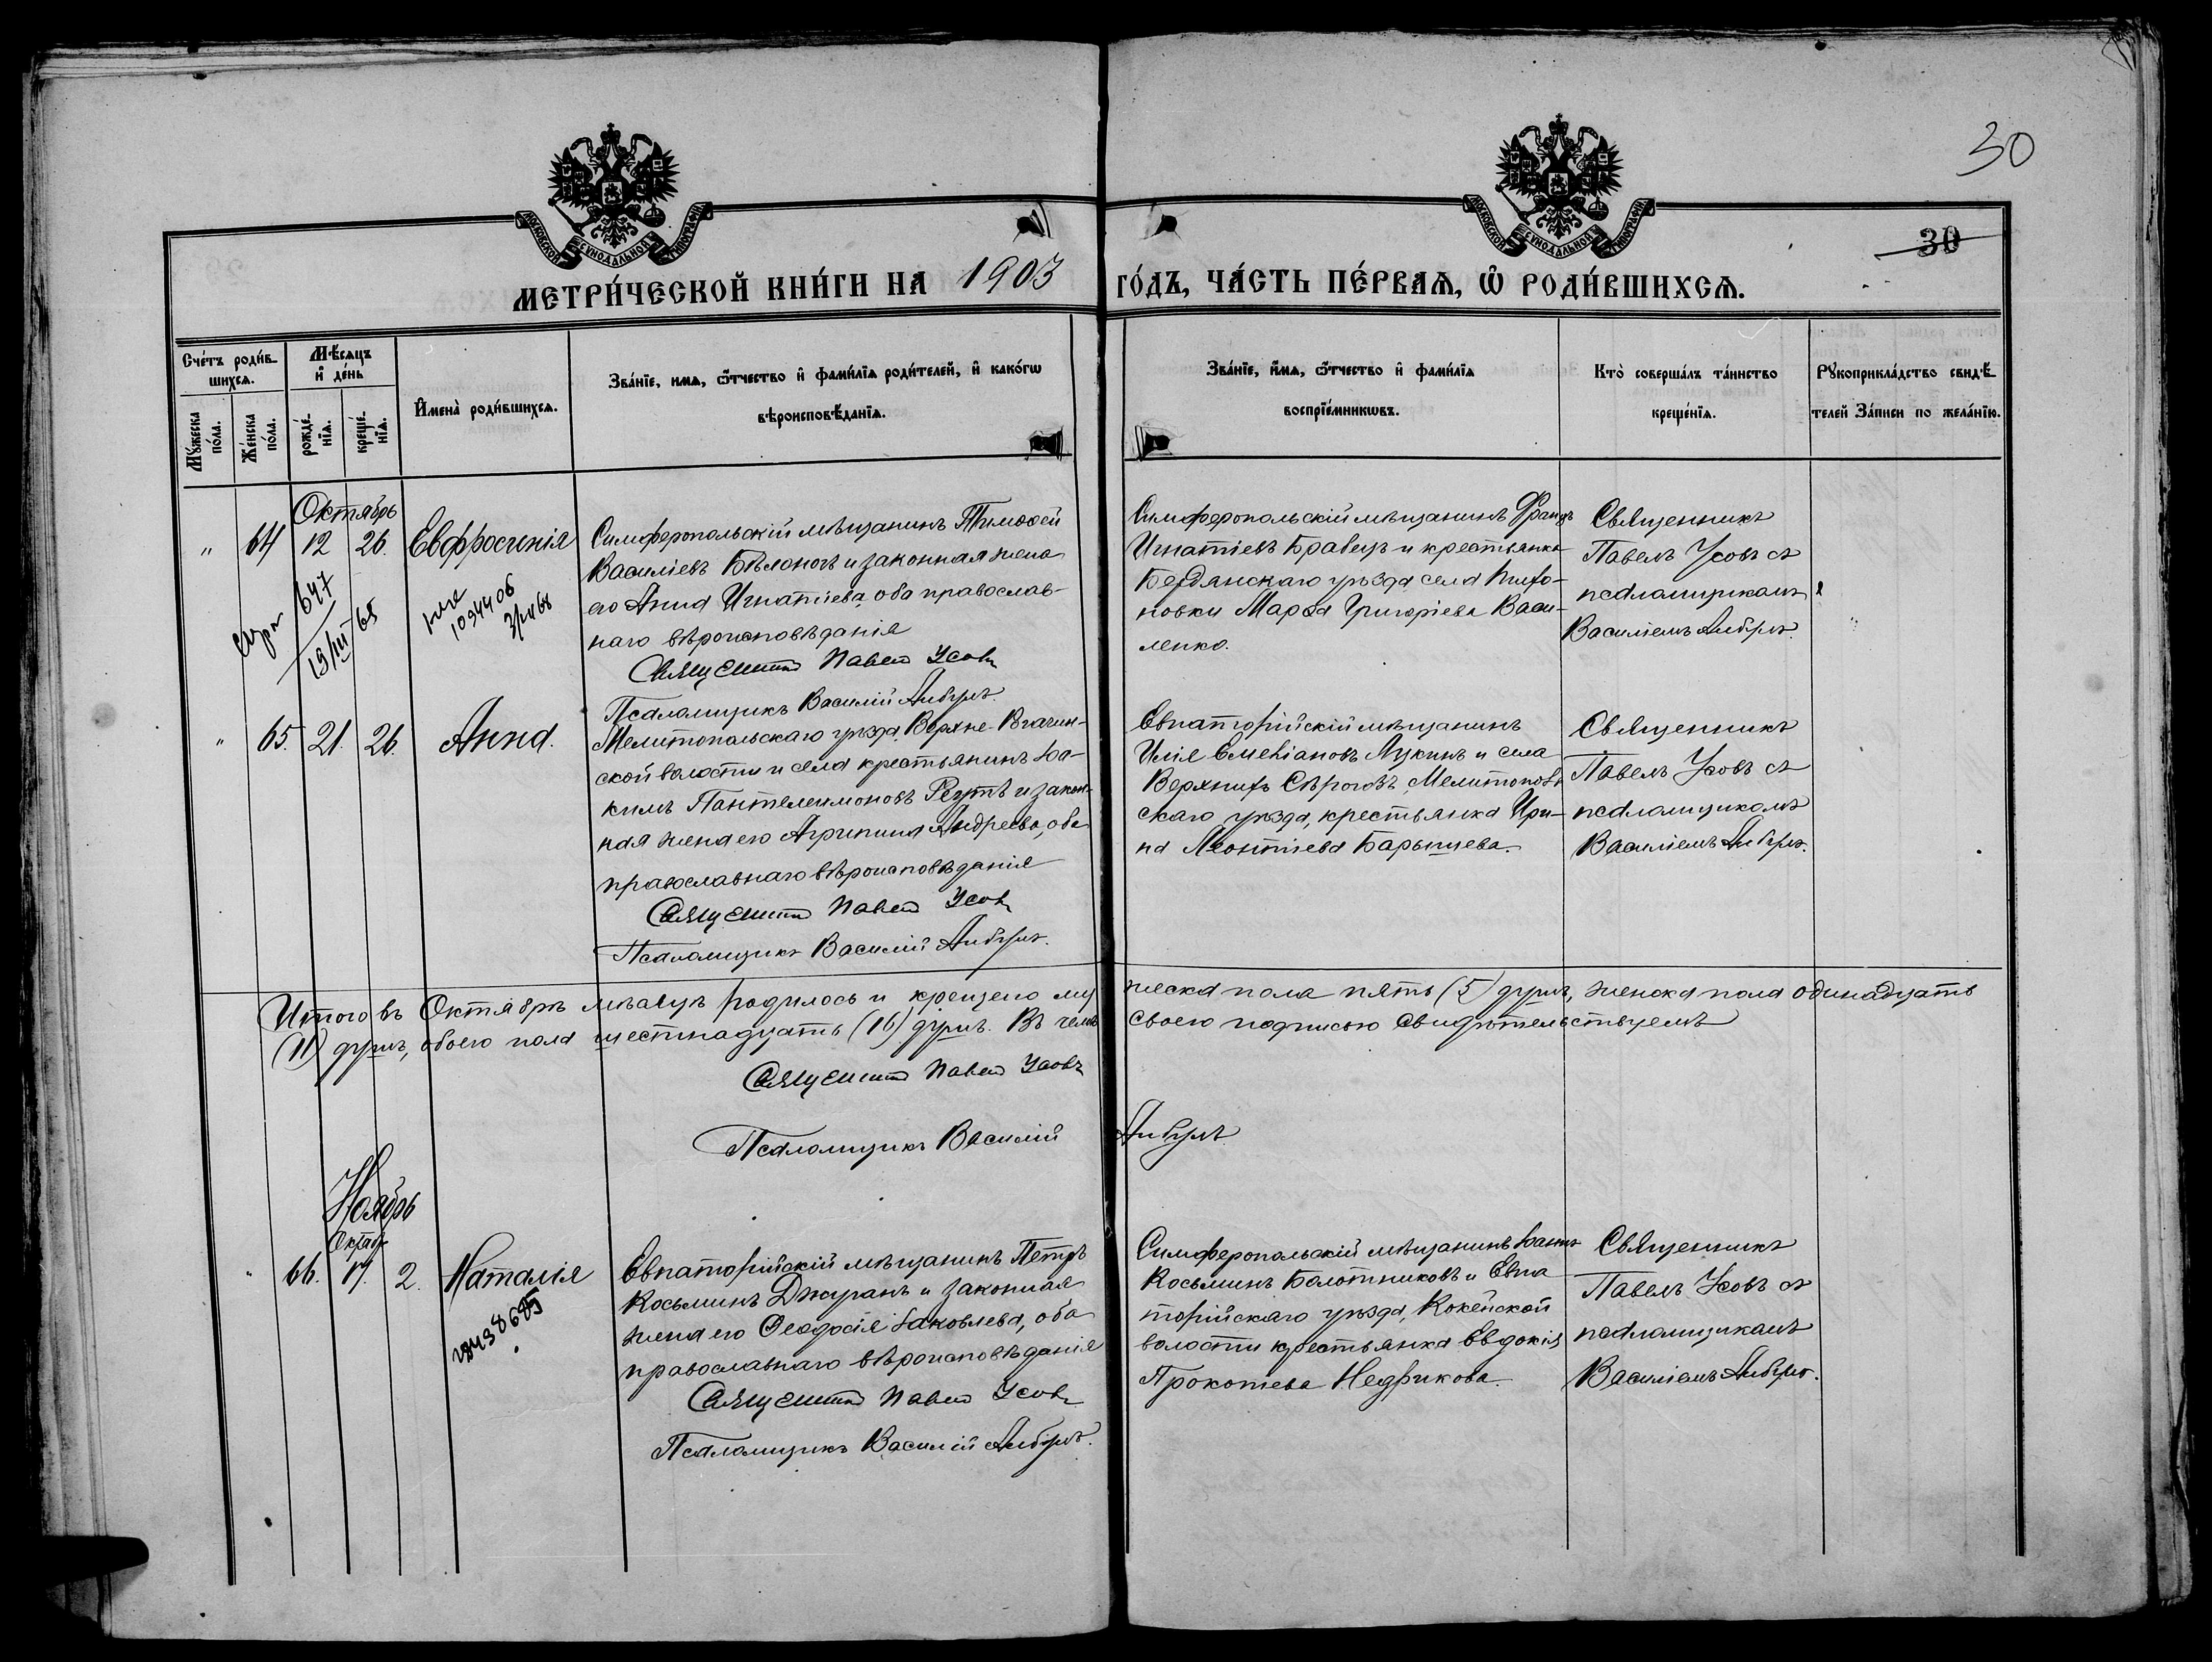 30
30
МОСКОВСКОЙ СѴНОДАЛЬНОЙ ТИПОГРАФІИ
МОСКОВСКОЙ СѴНОДАЛЬНОЙ ТИПОГРАФІИ
МЕТРИ́ЧЕСКОЙ КНИ́ГИ НА 1903 ГО́ДЪ, ЧА́СТЬ ПЕ́РВАѦ, Ѡ РОДИ́ВШИХСѦ.
Сче́тъ роди́в-
шихсѧ.
Мꙋжеска по́ла.
Же́нска по́ла.
Мѣ́сѧцъ
и҆ де́нь
рожде́-
нїѧ.
креще́-
нїѧ.
И҆мена̀ роди́вшихсѧ.
Зва́нїе, имѧ, ѻ҆́тчество и҆ фами́лїѧ роди́телей, и҆ како́гѡ
вѣроисповѣ́данїѧ.
Зва́нїе, и҆́мѧ, ѻ҆́тчество и҆ фами́лїѧ
воспрїе́мникѡвъ.
Кто̀ соверша́лъ та́инство
креще́нїѧ.
Рꙋкоприкла́дство свидѣ́-
телей За́писи по жела́нїю.
Октябрь
" 64 12 26. Евфросинія
647
19/III 65
1034406
Симферопольскій мѣщанинъ Тимоѳей
Василіевъ Бѣлоногъ и законная жена
его Анна Игнатіева, оба православ-
наго вѣроисповѣданія
Священникъ Павелъ Усовъ
Псаломщикъ Василій
Симферопольскій мѣщанинъ Францъ
Игнатіевъ Бравецъ и крестьянка
Бердянскаго уѣзда села
новки Марѳа Григоріева Васи-
ленко.
Священникъ
Павелъ Усовъ съ
псаломщикомъ
Василіемъ
" 65. 21. 26. Анна.
Мелитопольскаго уѣзда, Верхне-
ской волости и села крестьянинъ Іа-
кимъ Пантелеимоновъ Реутъ и закон-
ная жена его Агрипина Андреева, оба
православнаго вѣроисповѣданія
Священникъ Павелъ Усовъ
Псаломщикъ Василій
Евпаторійскій мѣщанинъ
Илія Емеліановъ Лукинъ и села
Верхнихъ Сѣрогозъ, Мелитополь-
скаго уѣзда, крестьянка Ири-
на Леонтіева Барышева.
Священникъ
Павелъ Усовъ съ
псаломщикомъ
Василіемъ
Итого въ Октябрѣ мѣсяцѣ родилось и крещено мужеска пола пять (5) душъ, женска пола одинадцать
(11) душъ, обоего пола шестнадцать (16) душъ. Въ чемъ своею подписью свидѣтельствуемъ
Священникъ Павелъ Усовъ
Псаломщикъ Василій
Ноябрь
Октяб.
" 66. 17. 2. Наталія
Евпаторійскій мѣщанинъ Петръ
Косьминъ Джуранъ и законная
жена его Ѳеодосія Іаковлева, оба
православнаго вѣроисповѣданія
Священникъ Павелъ Усовъ
Псаломщикъ Василій
Симферопольскій мѣщанинъ Іоаннъ
Косьминъ Болотниковъ и Евпа
торійскаго уѣзда, Кокейской
волости крестьянка Евдокія
Прокопіева Недрикова.
Священникъ
Павелъ Усовъ съ
псаломщикомъ
Василіемъ